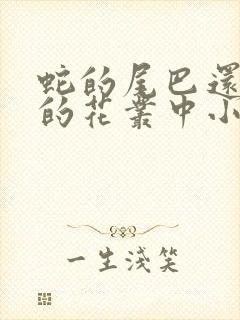 蛇的尾巴還
的花叢中小
一生淺笑